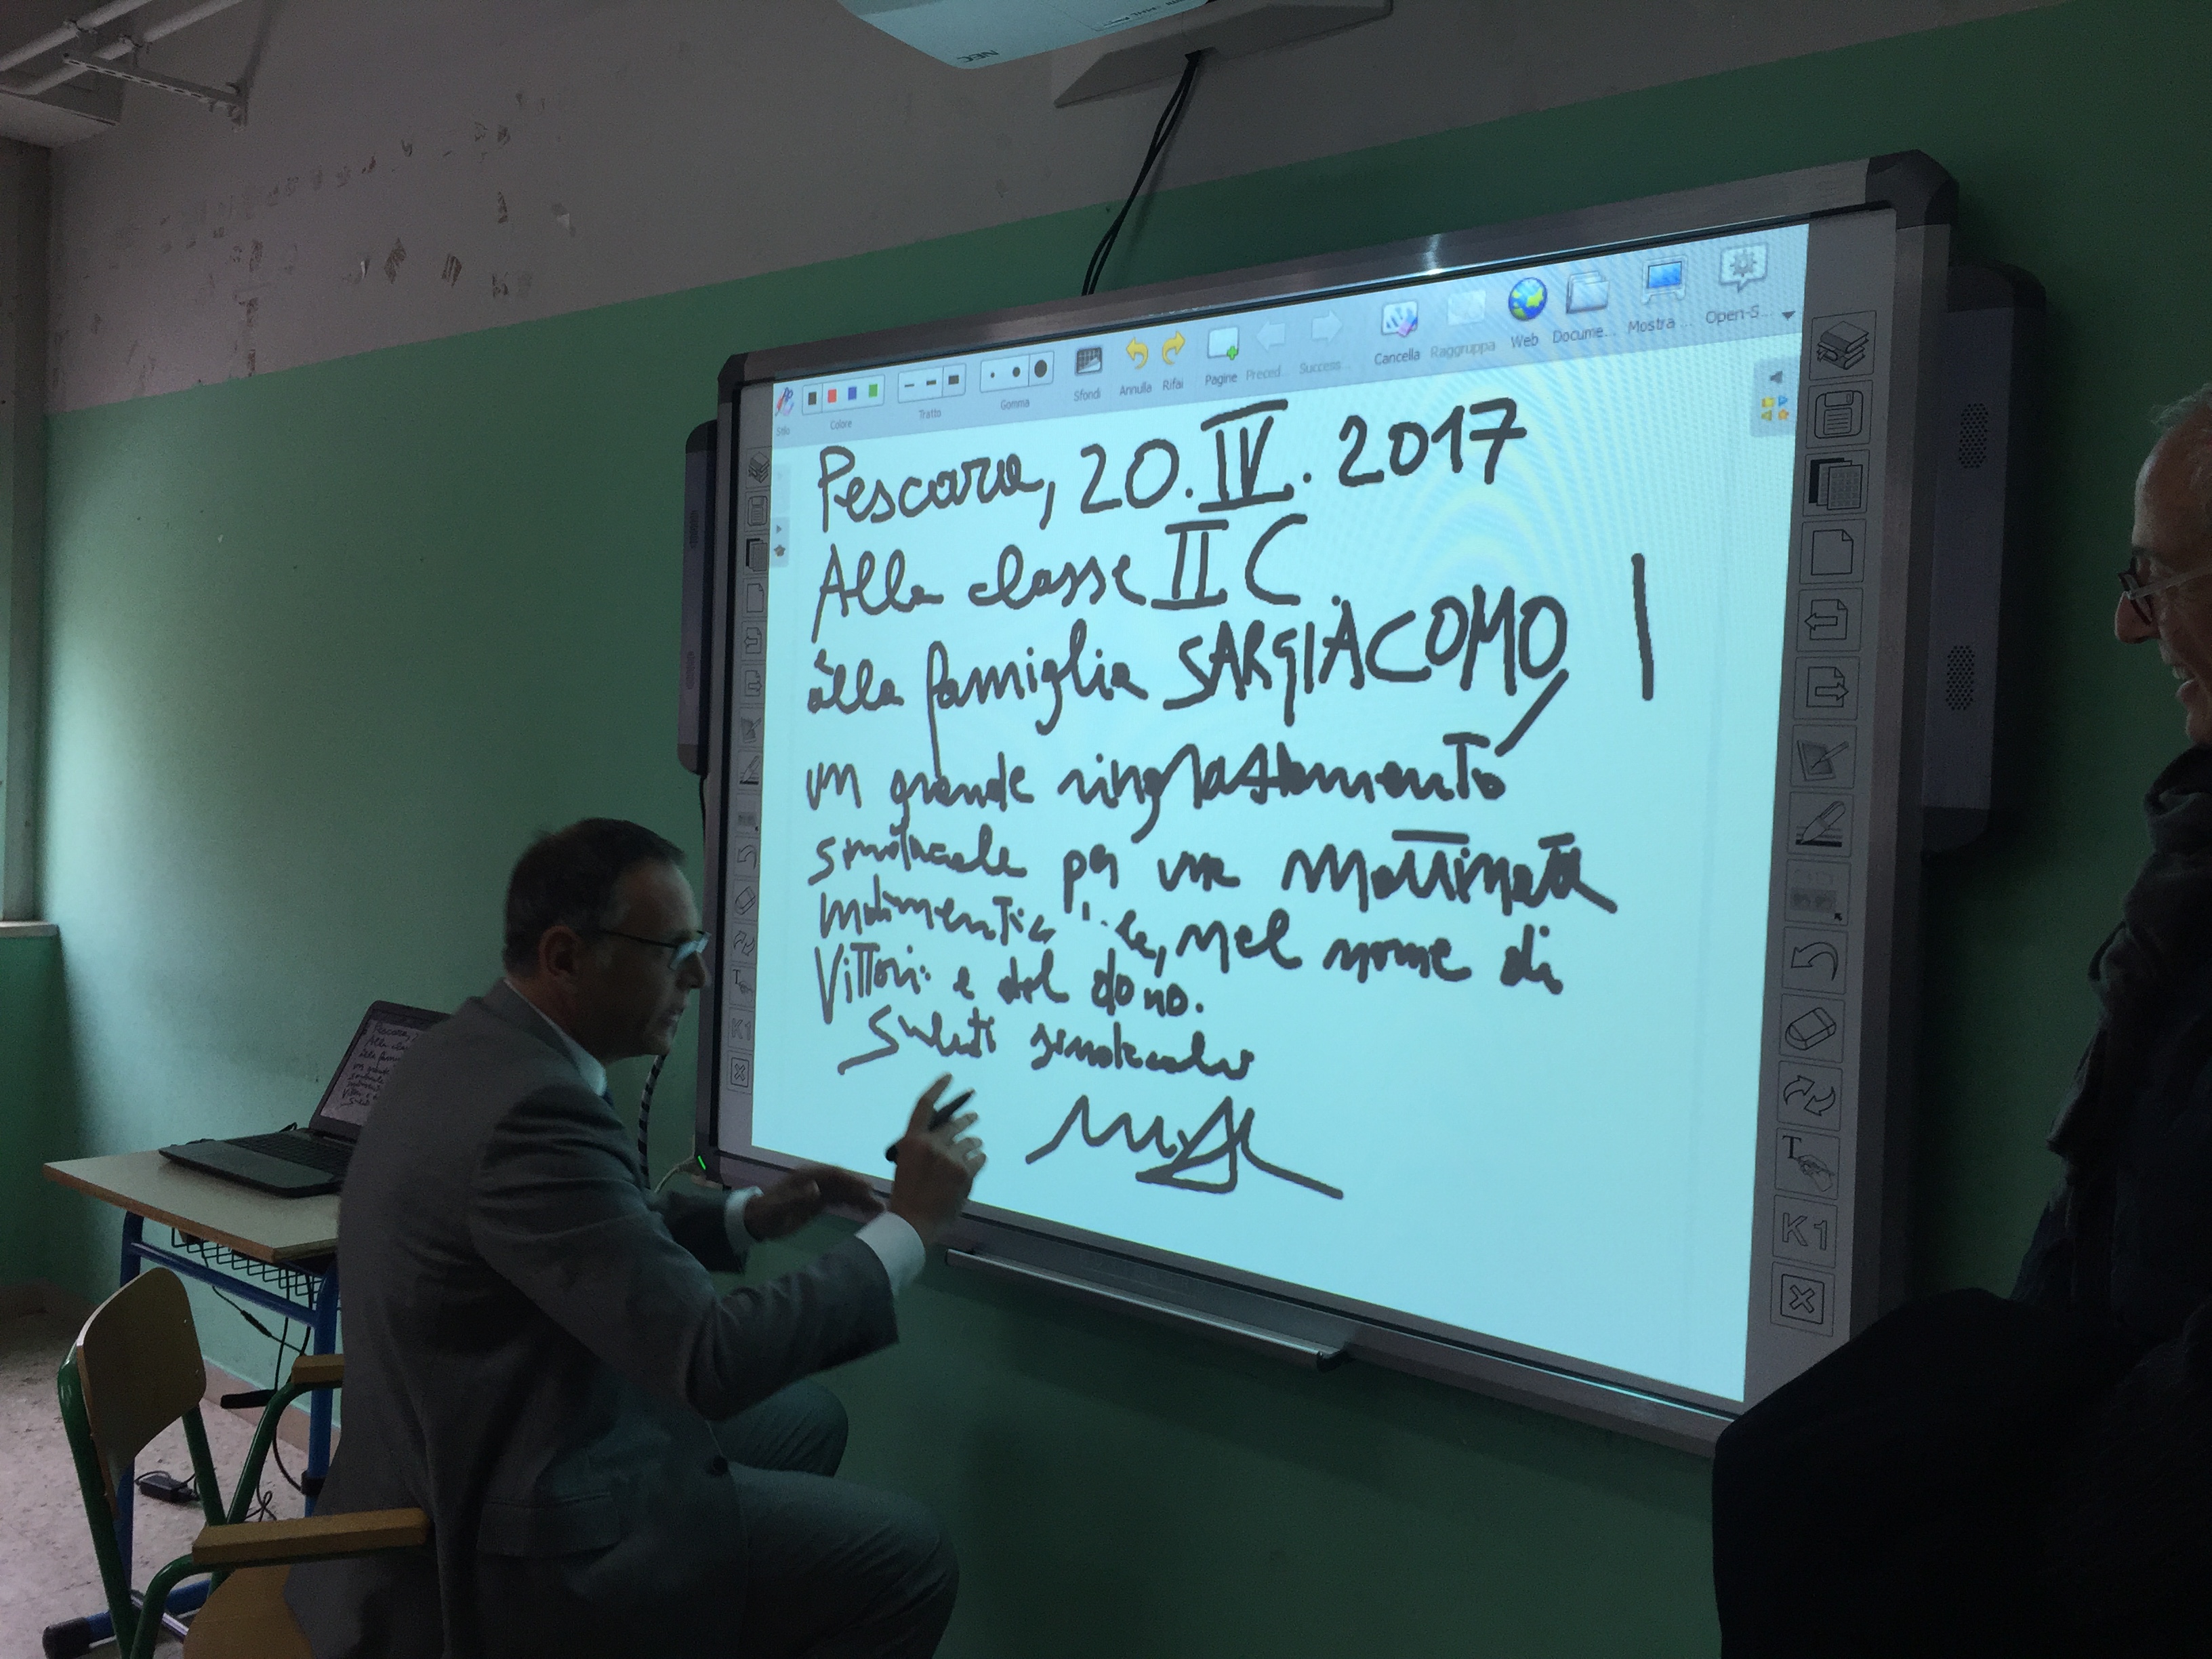 NEC
Stilo
Colore
Tratto
Gomma
Sfondi
Annulla
Rifai
Pagine
Preced
Success...
Cancella
Raggruppa
Web
Docume...
Mostra ...
Open-S...
Pescara, 20.IV.2017
Alla classe II C
alla famiglia SARGIACOMO,
un grande ringraziamento
sindacale per una mattinata
nel nome di
e del dono.
Saluti
T
K1
T
K1